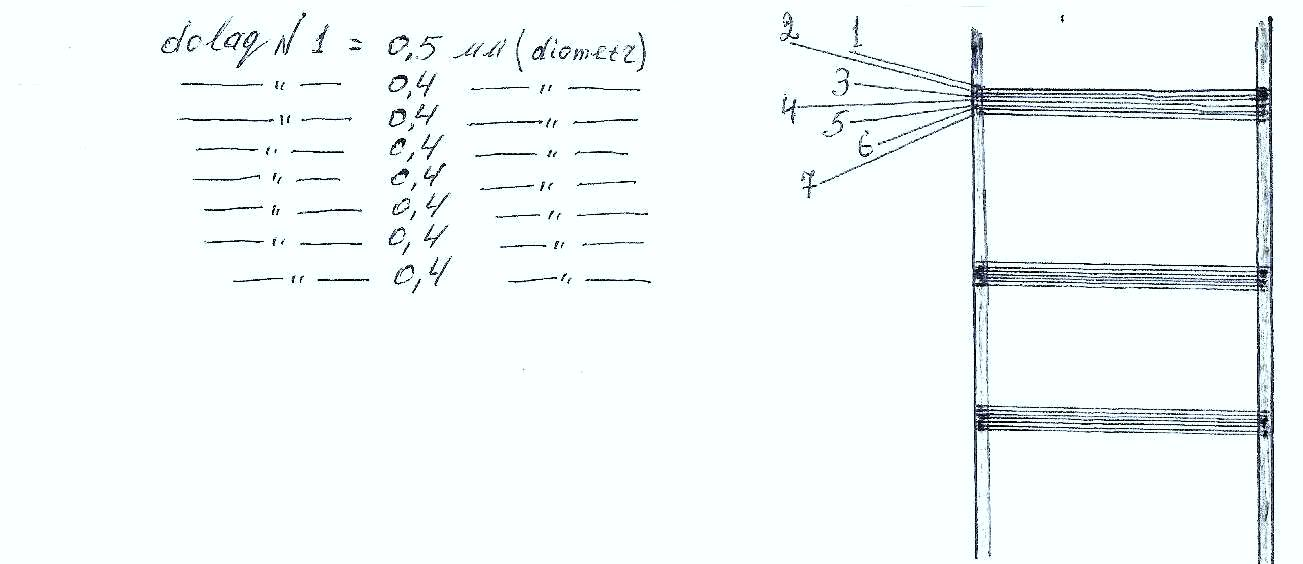 dolaq N 1 = 0,5 мм (diometr)
— " — 0,4 — " —
— " — 0,4 — " —
— " — 0,4 — " —
— " — 0,4 — " —
— " — 0,4 — " —
— " — 0,4 — " —
— " — 0,4 — " —
2
1
3
4
5
6
7